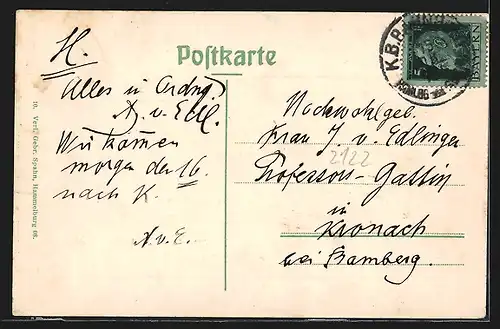 Postkarte
H.
Alles in Ordng
A. v. Edl.
Wir kommen
morgen den 16.
nach K.
A. v. E.
Hochwohlgeb.
Frau J. v. Edlinger
2122
Professors-Gattin
in
Kronach
bei Bamberg.
K.B.B
BAYERN
10. Verl. Gebr. Spahn, Hammelburg 08.